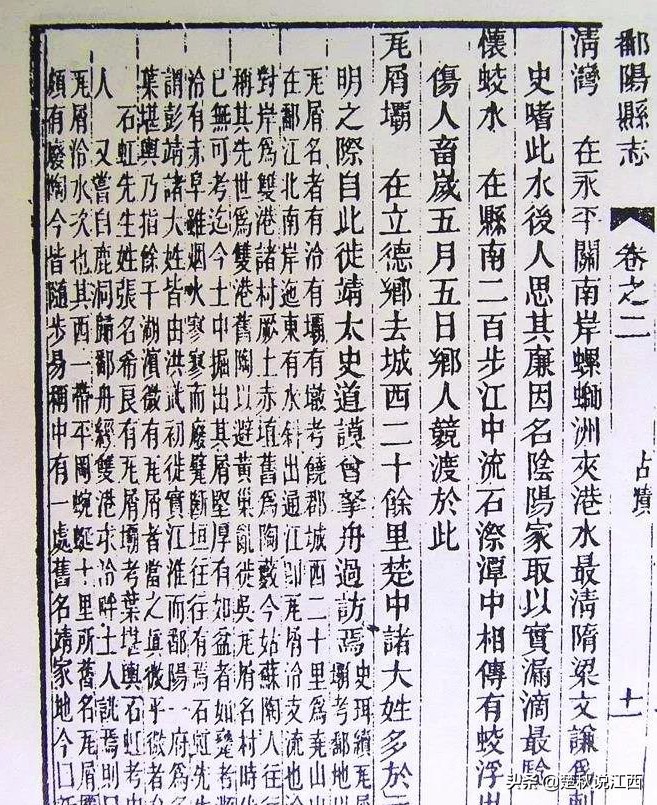 鄱陽縣志 卷之二 古蹟 十一
清灣 在永平關南岸螺螄洲夾港水最清隋梁文謙爲
史嗜此水後人思其廉因名陰陽家取以實漏滴最騐
懷蛟水 在縣南二百步江中流石漈潭中相傳有蛟浮出
傷人畜歲五月五日鄉人競渡於此
瓦屑壩 在立德鄉去城西二十餘里楚中諸大姓多於元
明之際自此徙靖太史道謨曾拏舟過訪焉 史珥續瓦屑
壩考鄱地以
瓦屑名者有洽有壩有墩考饒郡城西二十里爲堯山山
在鄱江北南岸迤東有水斜出通江卽瓦屑洽支流也
對岸爲雙港諸村厥土赤埴舊爲陶藪今姑蘇陶人往往
稱其先世爲雙港舊陶以避黃巢亂徙吳瓦屑名村時代
已無可考迄今土中掘出其屑堅厚有如盆者如甃者考
洽有赤阜雖烟火寥寥而廢甓斷垣往往有焉石虹先生
謂彭靖諸大姓皆由洪武初徙實江淮而鄱陽一府爲
葉堪輿乃指餘干湖濱微有瓦屑者當之眞微乎微者
石虹先生姓張名希良有瓦屑壩考葉堪輿石虹考中
人 又嘗自鹿洞歸鄱舟經雙港求洽畔土人訊焉則曰
瓦屑洽水次也其西一帶平岡蜿蜒十里所舊名瓦屑
頗有廢陶今皆隨步易稱中有一處舊名靖家地今
头条@楚秋说江西